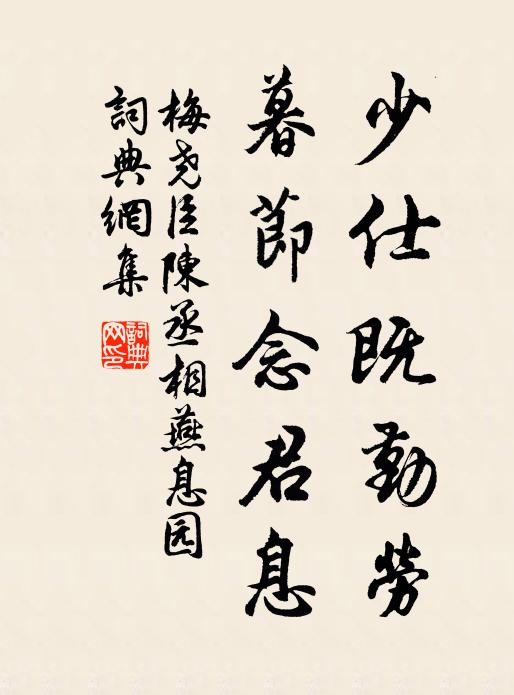 少仕既勤勞
暮節念君息
梅尧臣陳丞相燕息园
詞典網集
詞典網印